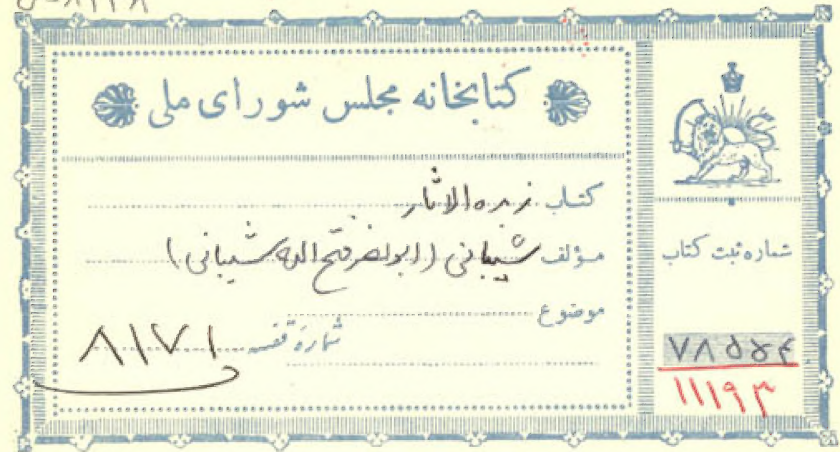 کتابخانه مجلس شورای ملی
کتاب زبده الاثار
مؤلف شیبانی (ابونصر فتح الله شیبانی)
موضوع
شماره قفسه ۸۱۷۱
شماره ثبت کتاب
۷۸۵۷۴
۱۱۱۹۳